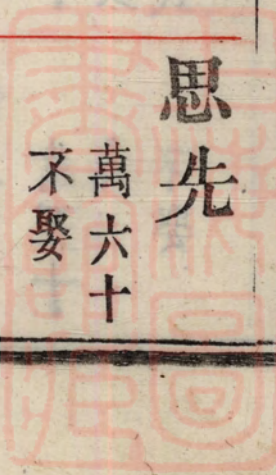 思先
萬六十
不娶